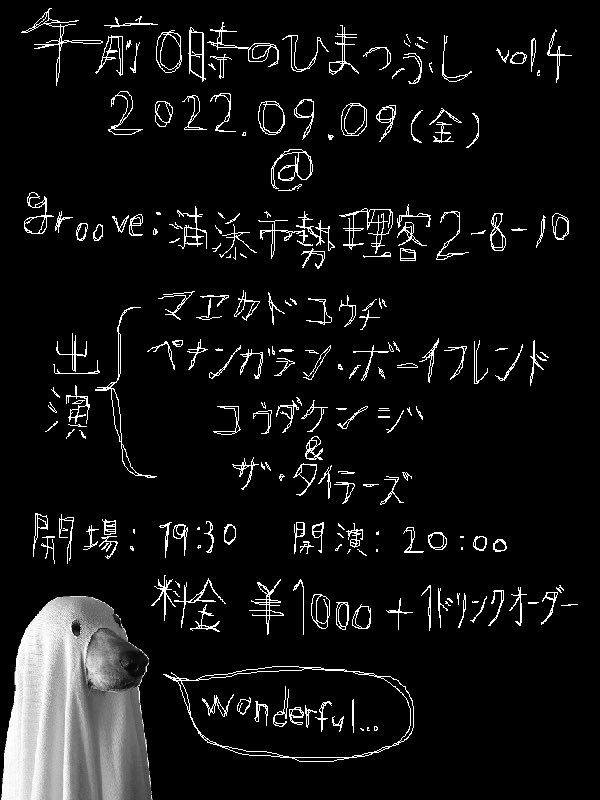 午前0時のひまつぶし vol.4
2022.09.09(金)
@
groove:浦添市勢理客2-8-10
出演
マエカドコウヂ
ペナンガラン・ボーイフレンド
コウダケンジ
&
ザ・タイラーズ
開場:19:30 開演:20:00
料金 ¥1000+1ドリンクオーダー
wonderful...